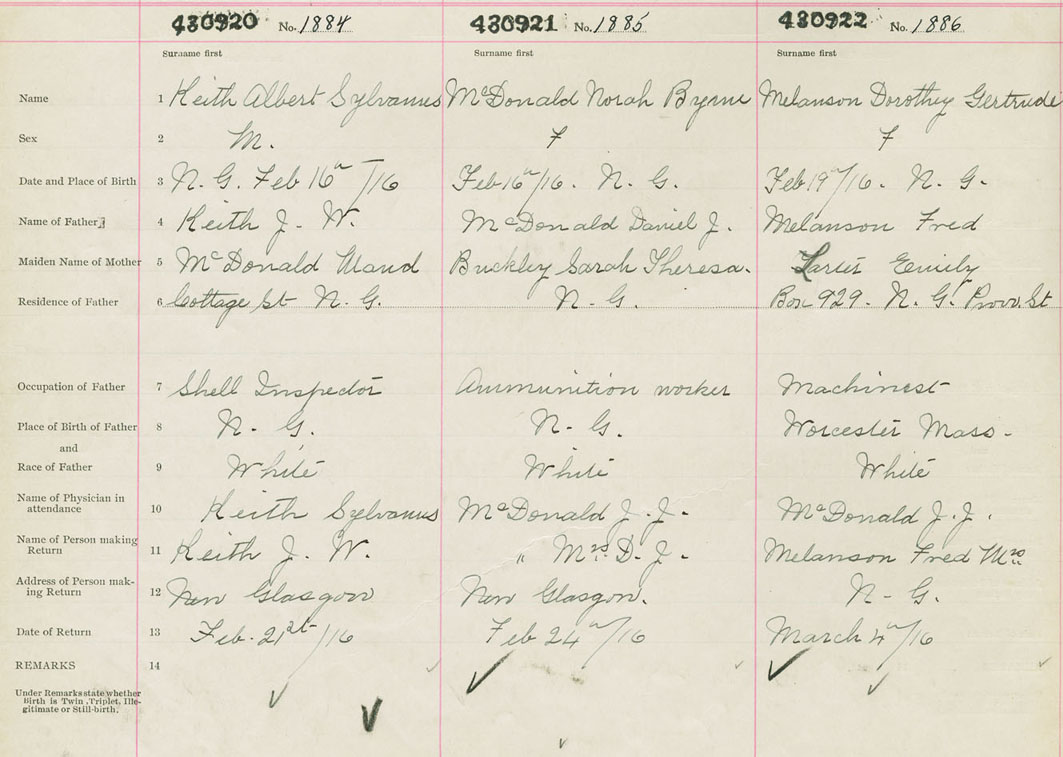 430920 No. 1884 430921 No. 1885 430922 No. 1886
Surname first Surname first Surname first
Name 1 Keith Albert Sylvanus McDonald Norah Byrne Melanson Dorothy Gertrude
Sex 2 M. F F
Date and Place of Birth 3 N. G. Feb 16th/16 Feb 16th/16. N. G. Feb 19th/16. N. G.
Name of Father 4 Keith J. W. McDonald Daniel J. Melanson Fred
Maiden Name of Mother 5 McDonald Maud Buckley Sarah Theresa. Emily
Residence of Father 6 Cottage St N. G. N. G. Box 929. N. G. Prov. St
Occupation of Father 7 Shell Inspector Ammunition worker Machinest
Place of Birth of Father 8 N. G. N. G. Worcester Mass.
and
Race of Father 9 White White White
Name of Physician in
attendance 10 Keith Sylvanus McDonald J. J. McDonald J. J.
Name of Person making
Return 11 Keith J. W. " Mrs. D. J. Melanson Fred Mrs.
Address of Person mak-
ing Return 12 New Glasgow New Glasgow. N. G.
Date of Return 13 Feb. 21st/16 Feb 24th/16 March 4th/16
REMARKS 14
Under Remarks state whether
Birth is Twin, Triplet, Ille-
gitimate or Still-birth.